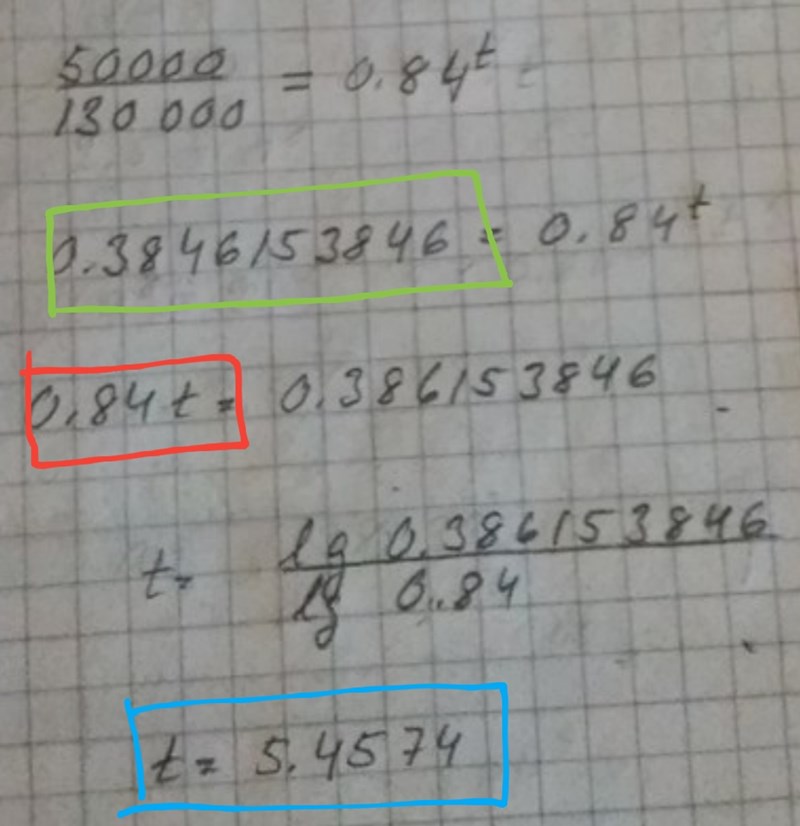 50000
130 000 = 0.84^t
0.3846153846 = 0.84^t
0.84 t = 0.386153846
t = lg 0.386153846
lg 0.84
t = 5.4574